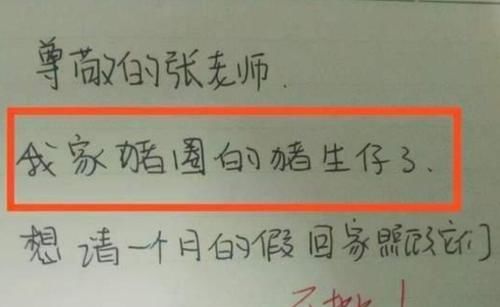 尊敬的张老师.
我家猪圈的猪生仔了.
想请一个月的假回家照顾它们